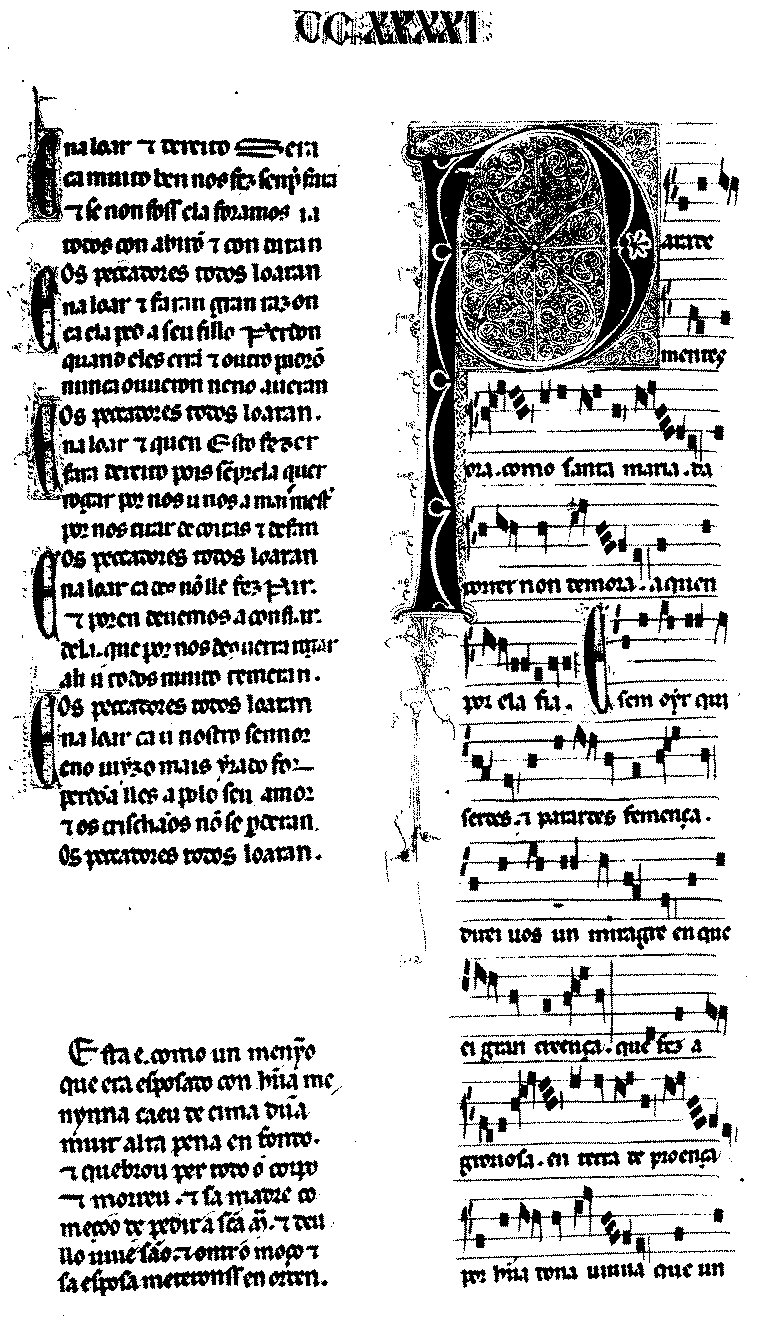 CCXXXXI
Ena loar τ dereito Sera
ca muito ben nos fez senp̃ fara
τ se non foss ela foramos ia
todos con abirõ τ con datan
Os peccadores todos loaran
Ena loar τ faran gran razon
ca ela ped a seu fillo perdon
quand eles errã τ outro pιorõ
nunca ouueron neno aueran
Os peccadores todos loaran.
Ena loar τ quen Esto fezer
fara dereito pois sẽp̃ ela quer
rogar por nos u nos a mais mest̃
por nos tirar de coitas τ dafan
Os peccadores todos loaran
Ena loar ca ds̃ nõ lle fez par.
τ poren deuemos a confiar.
dela. que por nos deu uerra rogar
ali u todos muito temeran.
Os peccadores todos loaran
Ena loar ca u nostro sennor
eno iuyzo mais yrado for
perdõa lles a polo seu amor
τ os crischãos nõ se p̃deran.
Os peccadores todos loaran.
Esta e. como un menỹo
que era esposado con hũa me
nynna caeu de cima dũa
muit alta pena en fondo.
τ quebrou per todo o corpo
τ morreu. τ sa madre co
meçó de pedir a sc̃a m̃. τ deu
llo uiuẽ são. τ ontr o moço τ
sa esposa meteronss en orden.
Parade
mentes
ora. como santa maria. da
correr non demora. a quen
por ela fia. E sem oỹr qui
serdes. τ parardes femença.
direi uos un miragre en que
ei gran creença. que fez a
groriosa. en terra de proença
por hũa dona uiuua que un